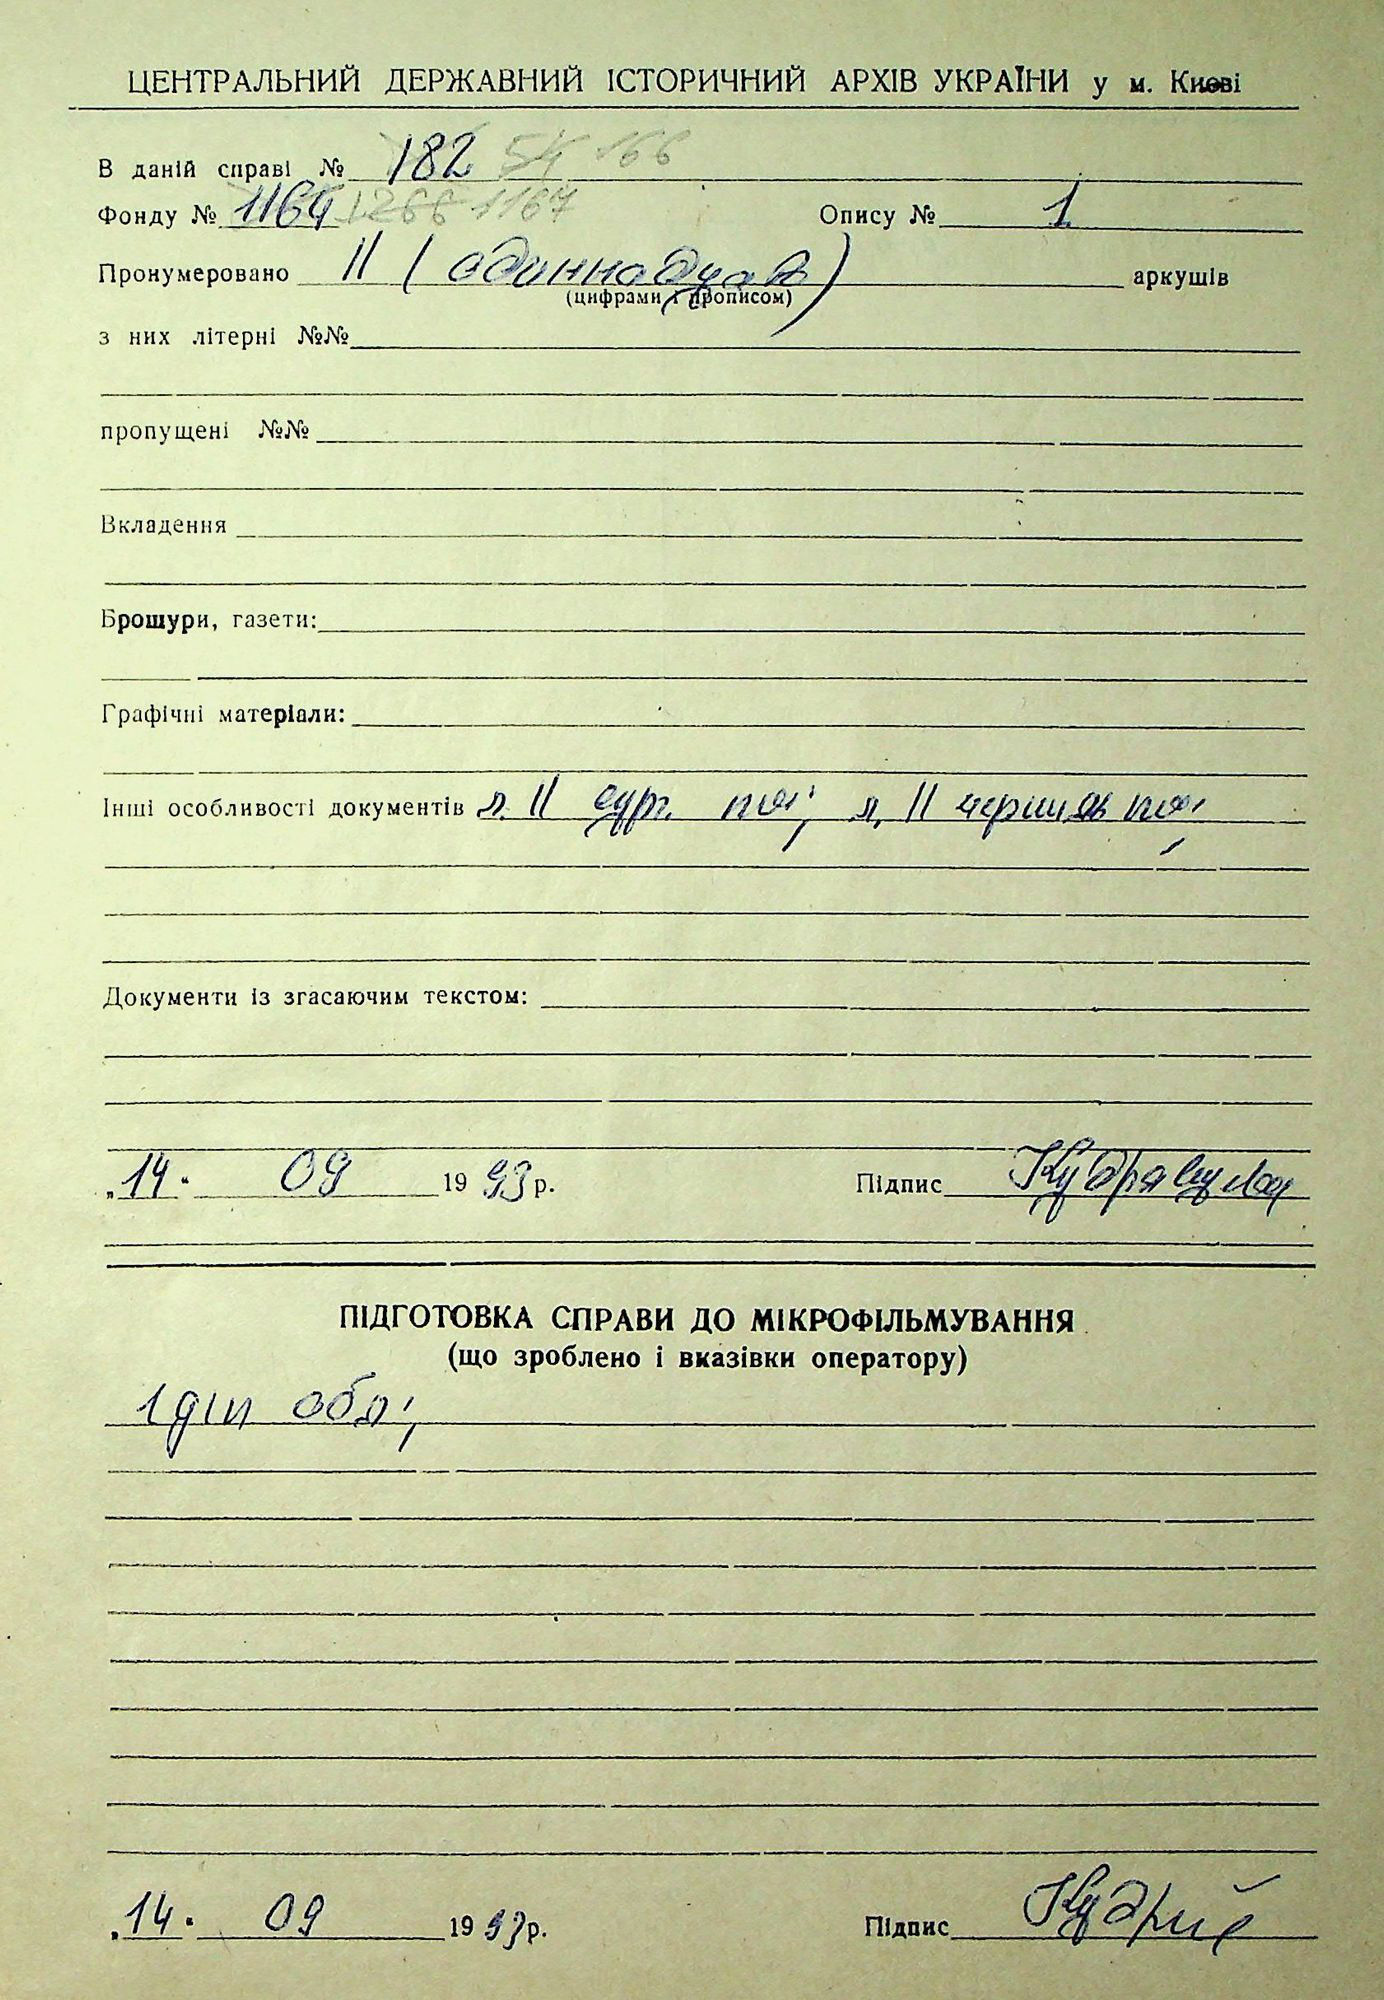 ЦЕНТРАЛЬНИЙ ДЕРЖАВНИЙ ІСТОРИЧНИЙ АРХІВ УКРАЇНИ у м. Києві
В даній справі № 182 54 166
Фонду № 1164 1266 1167 Опису № 1
Пронумеровано 11 (одиннадцать) аркушів
(цифрами і прописом)
з них літерні №№
пропущені №№
Вкладення
Брошури, газети:
Графічні матеріали:
Інші особливості документів л. 11 сург. л. 11
Документи із згасаючим текстом:
„14“ 09 1993 р. Підпис Кудрявцева
ПІДГОТОВКА СПРАВИ ДО МІКРОФІЛЬМУВАННЯ
(що зроблено і вказівки оператору)
1
„14“ 09 1993 р. Підпис